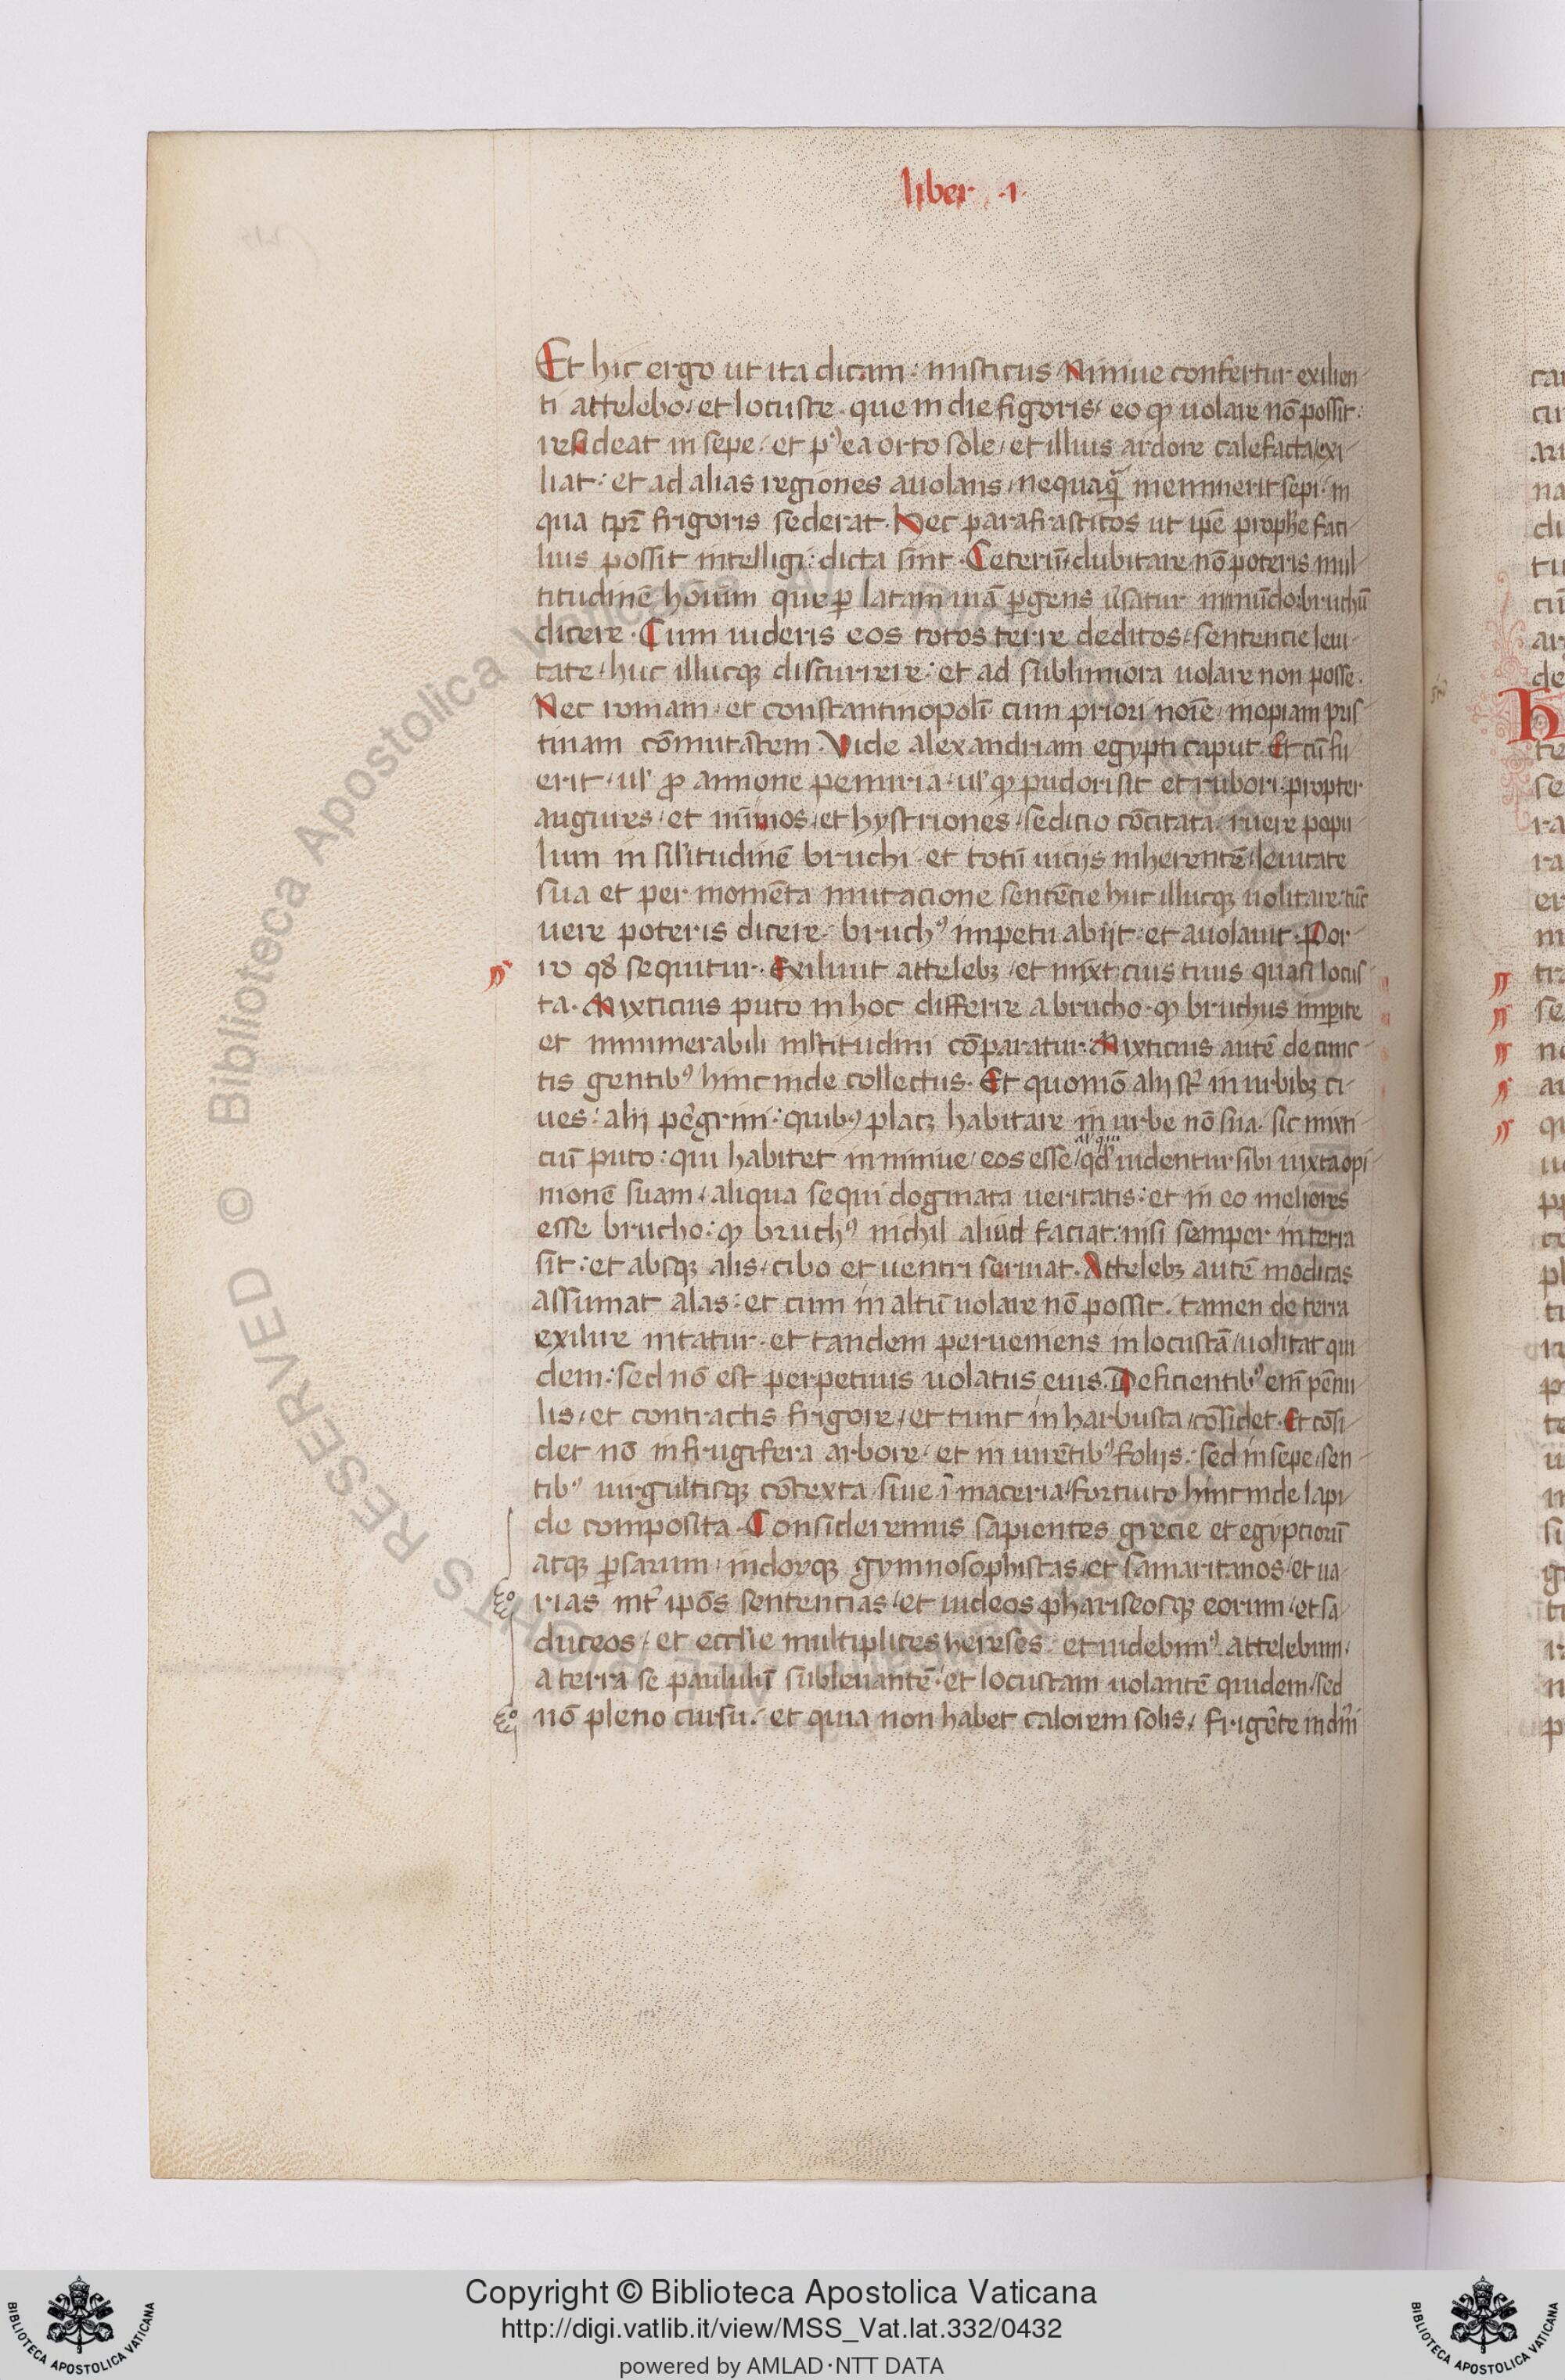 liber ·1·
Et hic ergo ut ita dicam: misticus Niniue confertur exilien
ti attelebo, et locuste que in die figoris, eo qꝫ uolare nō possit:
resideat in sepe, et pꝰea orto sole, et illius ardore calefacta, exi
liat: et ad alias regiones auolans, nequaq̄ meminerit sepi in
qua tp̄r frigoris sederat. Hec parafrasticos ut ip̄e prophe faci
lius possit intelligi: dicta sint. Ceterū dubitare nō poteris mul
titudinē hoīum que ꝑ latam uiā ꝑgens u̓satur in mūdo: bruchū
dicere. Cum uideris eos totos terre deditos, sentencie leui
tate, huc illucqꝫ discurrere: et ad sublimiora uolare non posse.
Nec romam, et constantinopolī cum priori noīe, inopiam pris
tinam cōmutastem. Vide alexandriam egypti caput. Et cū fu
erit, ul̓ ꝓ annone penuria, ul̓ qꝫ pudori sit et rubori, propter
augures, et mīmos, et hystriones, sedicio cōcitata, ruere popu
lum in sil̓itudinē bruchi et totū uicijs inherentē, leuitate
sua et per momēta mutacione sentēcie huc illucqꝫ uolitare: tūc
uere poteris dicere, bruchꝰ impetu abijt: et auolauit. Por
ro qd̓ sequitur. Exiliuit attelebꝫ, et mixticius tuus quasi locus
ta. Mixticius puto in hoc differre a brucho, qꝫ bruchus imperite
et innumerabili ml̓titudini cōparatur. Mixticius autē de cunc
tis gentibꝰ hinc inde collectus. Et quomō alij st̓ in urbibꝫ ci
ues: alij peg̓rini: quibꝰ placꝫ habitare in urbe nō sua. sic mixti
ciū puto: qui habitet in niniue, eos esse, qd̓ uidentur sibi iuxta opi
al̓ qui
nionē suam, aliqua sequi dogmata ueritatis: et in eo meliores
esse brucho: qꝫ bruchꝰ nichil aliud faciat: nisi semper in terra
sit: et absqꝫ alis, cibo et uentri seruiat. Attelebꝫ autē modicas
assumat alas: et cum in altū uolare nō possit, tamen de terra
exilire nitatur. et tandem perueniens in locustā, uolitat qui
dem: sed nō est perpetuus uolatus eius. Deficientibꝰ em̄ pēnu
lis, et contractis frigore, et tunc in harbusta, cōsidet. Et cōsi
det nō in frugifera arbore, et in uirētibꝰ folijs, sed in sepe, sen
tibꝰ uirgultisqꝫ cōtexta, siue ī maceria, fortuito hinc inde lapi
de composita. Consideremus sapientes grecie et egyptiorū
atqꝫ ꝑsarum, indorqꝫ gymnosophistas, et samaritanos, et ua
rias int̓ ipōs sentencias, et iudeos phariseosqꝫ eorum, et sa
duceos, et eccl̓ie multiplices hereses. et uidebimꝰ attelebum,
a terra se paululū subleuantē, et locustam uolantē quidem, sed
nō pleno cursu, et quia non habet calorem solis, frigēte in